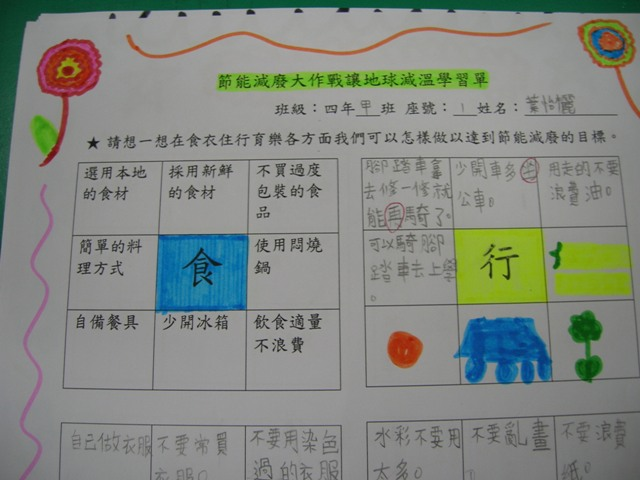 節能減廢大作戰讓地球減溫學習單
班級：四年甲班 座號：1 姓名：葉怡儷
★請想一想在食衣住行育樂各方面我們可以怎樣做以達到節能減廢的目標。
選用本地的食材
採用新鮮的食材
不買過度包裝的食品
簡單的料理方式
食
使用悶燒鍋
自備餐具
少開冰箱
飲食適量不浪費
腳踏車拿去修一修就能再騎了。
少開車多坐公車。
用走的不要浪費油。
可以騎腳踏車去上學。
行
自己做衣服
不要常買衣服。
不要用染色過的衣服
水彩不要用太多。
不要亂畫
不要浪費紙。